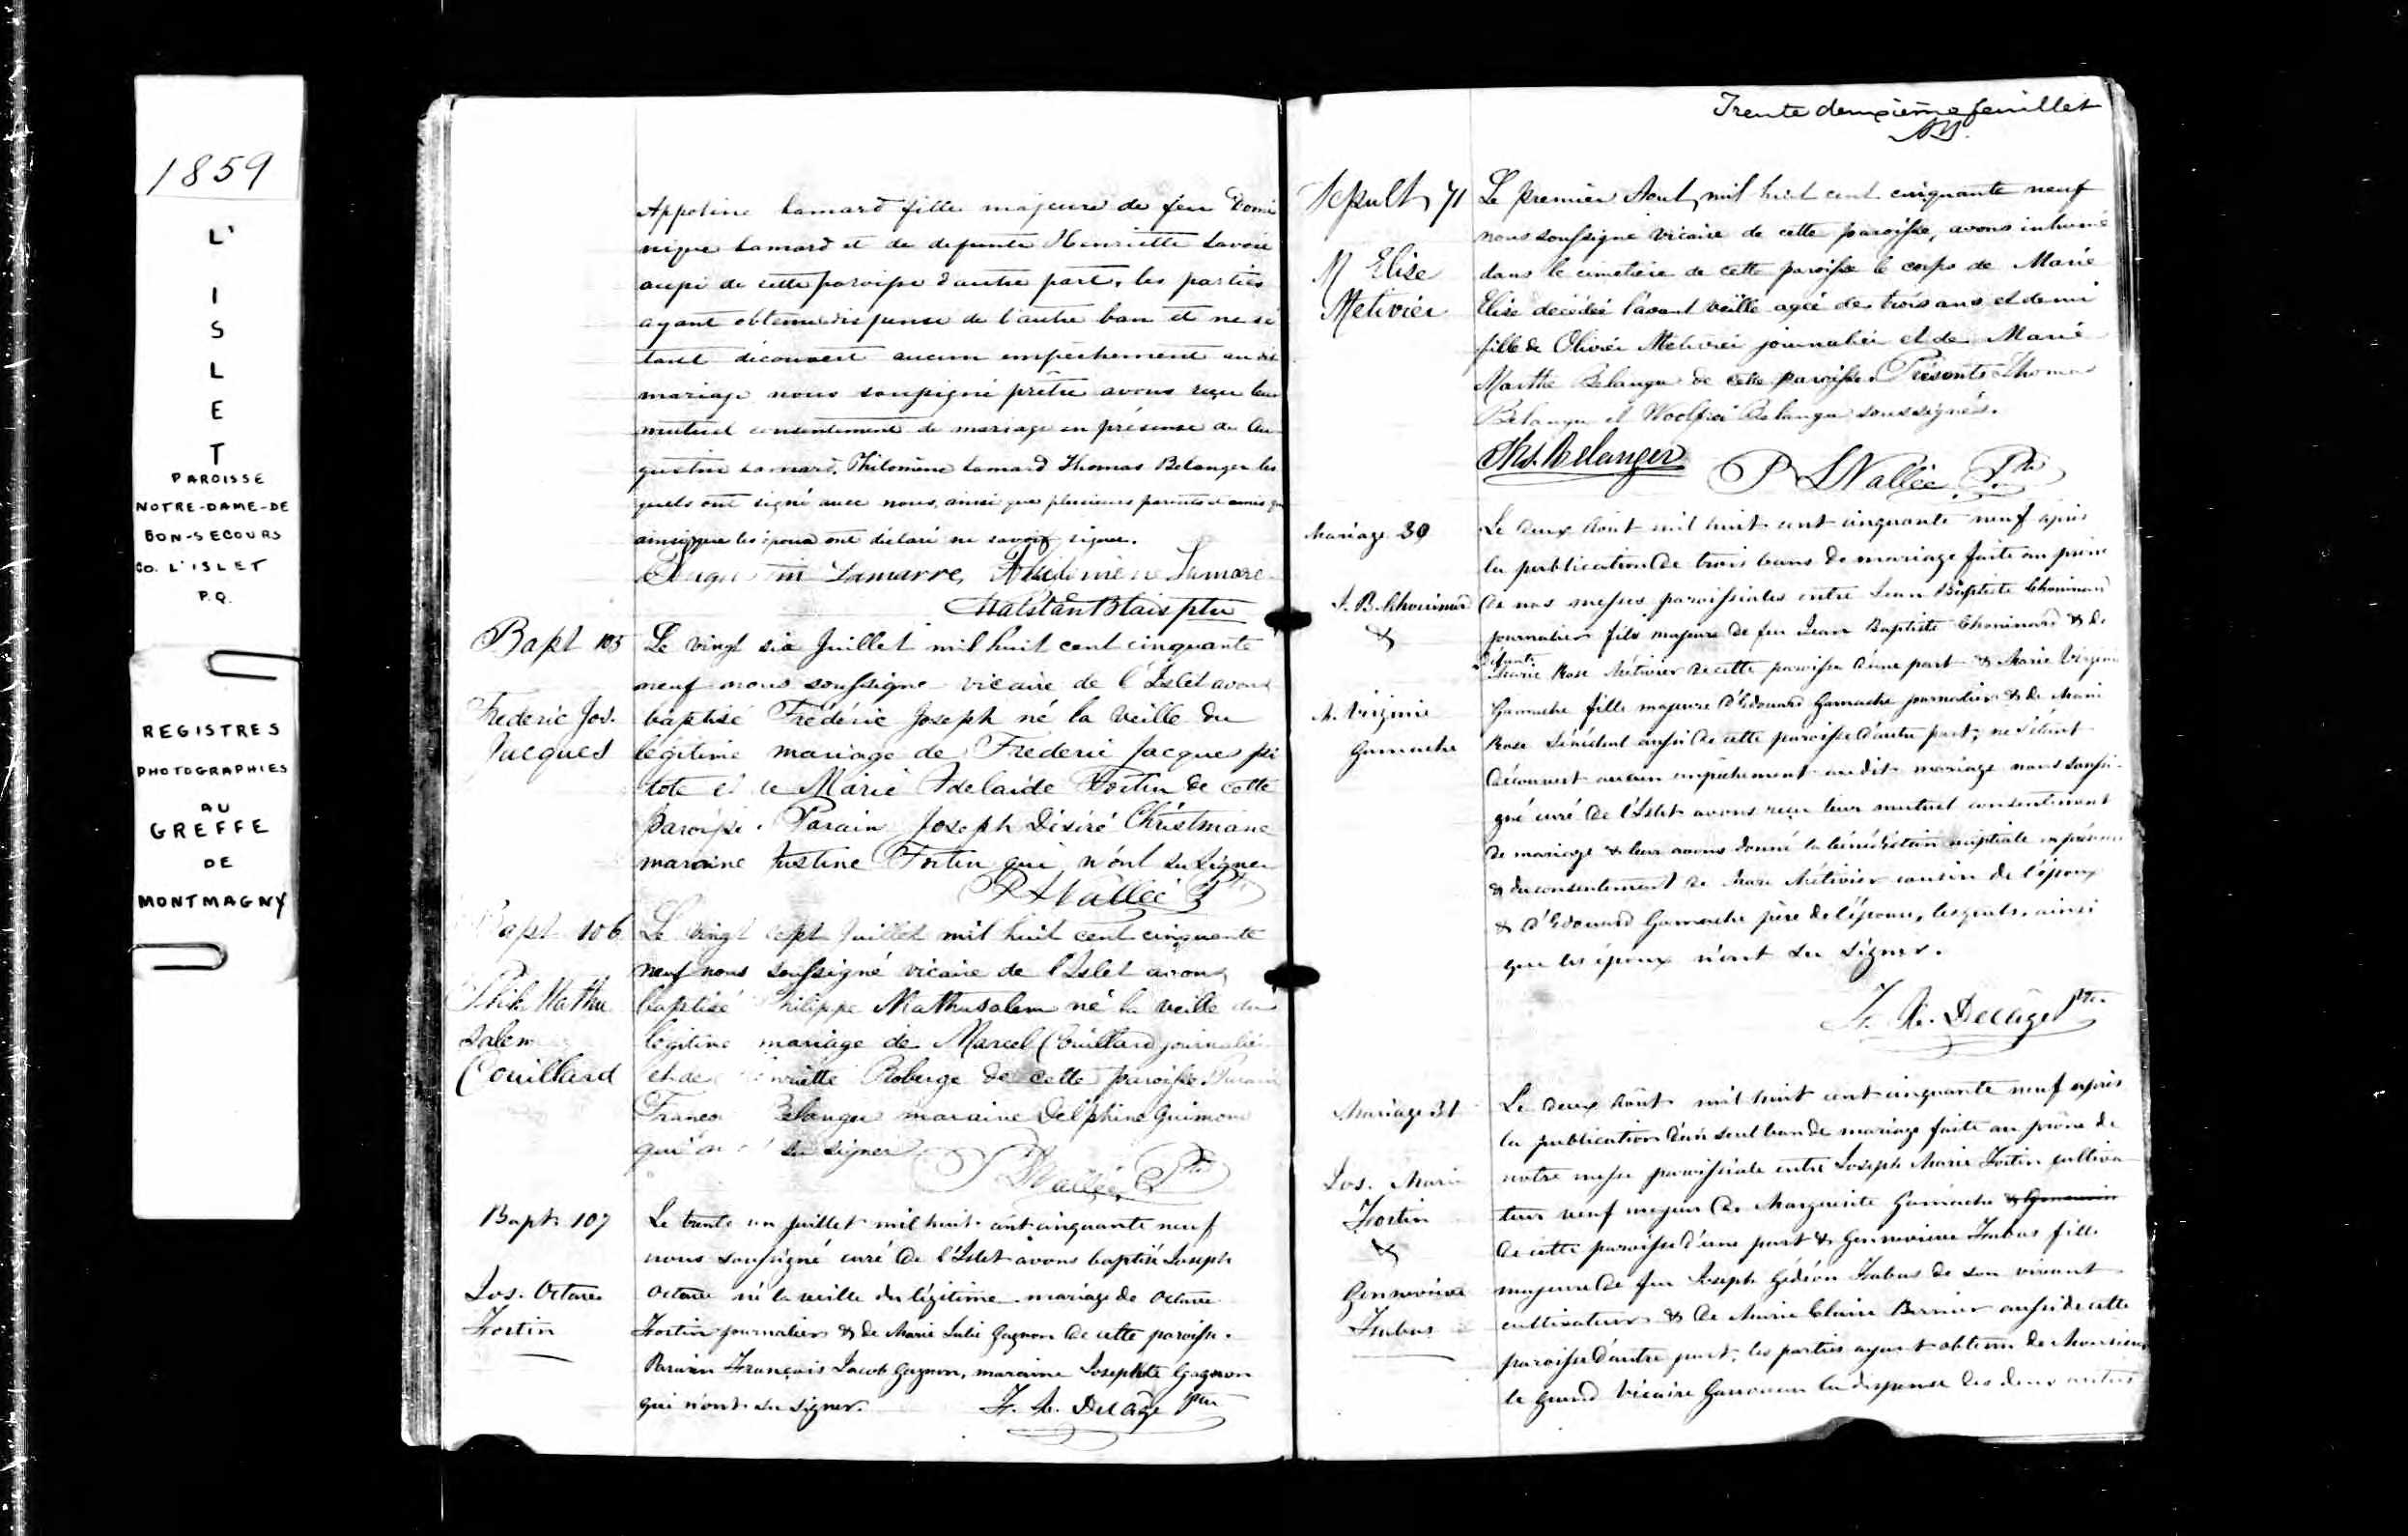 1859
L'
I
S
L
E
T
PAROISSE
NOTRE-DAME-DE
BON-SECOURS
CO. L'ISLET
P.Q.
REGISTRES
PHOTOGRAPHIES
AU
GREFFE
DE
MONTMAGNY
Appoline Lamard fille majeure de feu Domi
nique Lamard et de defunte Henriette Savoie
aussi de cette paroisse d'autre part, les parties
ayant obtenu dispense de l'autre ban et ne sé
tant découvert aucun empêchement au dit
mariage nous soussigné prêtre avons reçu leur
mutuel consentement de mariage en présence de Au
gustin Lamard, Philomène Lamard Thomas Belanger les
quels ont signé avec nous, ainsi que plusieurs parents et amis
ainsi que les époux ont déclaré ne savoir signer.
Augustin Lamarre, Philomène Lamare
Malstan Blais ptre
Bapt 105
Frederic Jos.
Jacques
Le vingt six Juillet mil huit cent cinquante
neuf nous soussigné vicaire de l'Islet avons
baptisé Frédéric Joseph né la veille du
légitime mariage de Frederic Jacques pi
lote et de Marie Adelaide Fortin de cette
paroisse. Parain Joseph Désiré Christmane
maraine Justine Fortin qui n'ont su signer
Vallée Ptre
Bapt 106
Phil. Mathu
salem
Couillard
Le vingt sept Juillet mil huit cent cinquante
neuf nous soussigné vicaire de l'Islet avons
baptisé Philippe Mathusalem né la veille du
légitime mariage de Marcel Couillard journalier
et de Henriette Roberge de cette paroisse. Parain
Belanger maraine Delphine Guimond
qui n'ont su signer
Vallée, Ptre
Bapt. 107
Jos. Octave
Fortin
Le trente un Juillet mil huit cent cinquante neuf
nous soussigné curé de l'Islet avons baptisé Joseph
Octave né la veille du légitime mariage de Octave
Fortin journalier & de Marie Julie Gagnon de cette paroisse.
Parain François Jacob Gagnon, maraine Josephte Gagnon
qui n'ont su signer.
F. X. Delâge Ptre
Trente deuxième feuillet
Sepult 71
M Elise
Metivier
Le premier Aout mil huit cent cinquante neuf
nous soussigné vicaire de cette paroisse, avons inhumé
dans le cimetière de cette paroisse le corps de Marie
Elise décédée l'avant veille agée de trois ans et demi
fille de Olivier Metivier journalier et de Marie
Marthe Belanger de cette paroisse. Présents Thomas
Belanger et Belanger soussignés.
Ths. Belanger
Vallée, Ptre
Mariage 30
J. B. Chouinard
&
M. Virginie
Gamache
Le deux Août mil huit cent cinquante neuf après
la publication de trois bans de mariage faite au prône
de nos messes paroissiales entre Jean Baptiste Chouinard
journalier fils majeure de feu Jean Baptiste Chouinard & de
défunte
Marie Rose Métivier de cette paroisse d'une part & Marie Virginie
Gamache fille majeure d'Edouard Gamache journalier & de Marie
Rose Sénéchal aussi de cette paroisse d'autre part; ne s'étant
découvert aucun empêchement audit mariage nous soussi-
gné curé de l'Islet avons reçu leur mutuel consentement
de mariage & leur avons donné la bénédiction nuptiale en présence
& du consentement de Métivier cousin de l'époux
& d'Edouard Gamache père de l'épouse, lesquels, ainsi
que les époux n'ont su signer.
F. X. Delâge Ptre
Mariage 31
Jos. Marie
Fortin
&
Gennevieve
Le deux Août mil huit cent cinquante neuf après
la publication d'un seul ban de mariage faite au prône de
notre messe paroissiale entre Joseph Marie Fortin cultiva
teur veuf majeur de Marguerite Gamache
de cette paroisse d'une part & Gennevieve fille
majeure de feu Joseph Gédéon de son vivant
cultivateur & de Marie Claire Bernier aussi de cette
paroisse d'autre part, les parties ayant obtenu de Monsieur
le Grand Vicaire la dispense des deux autres